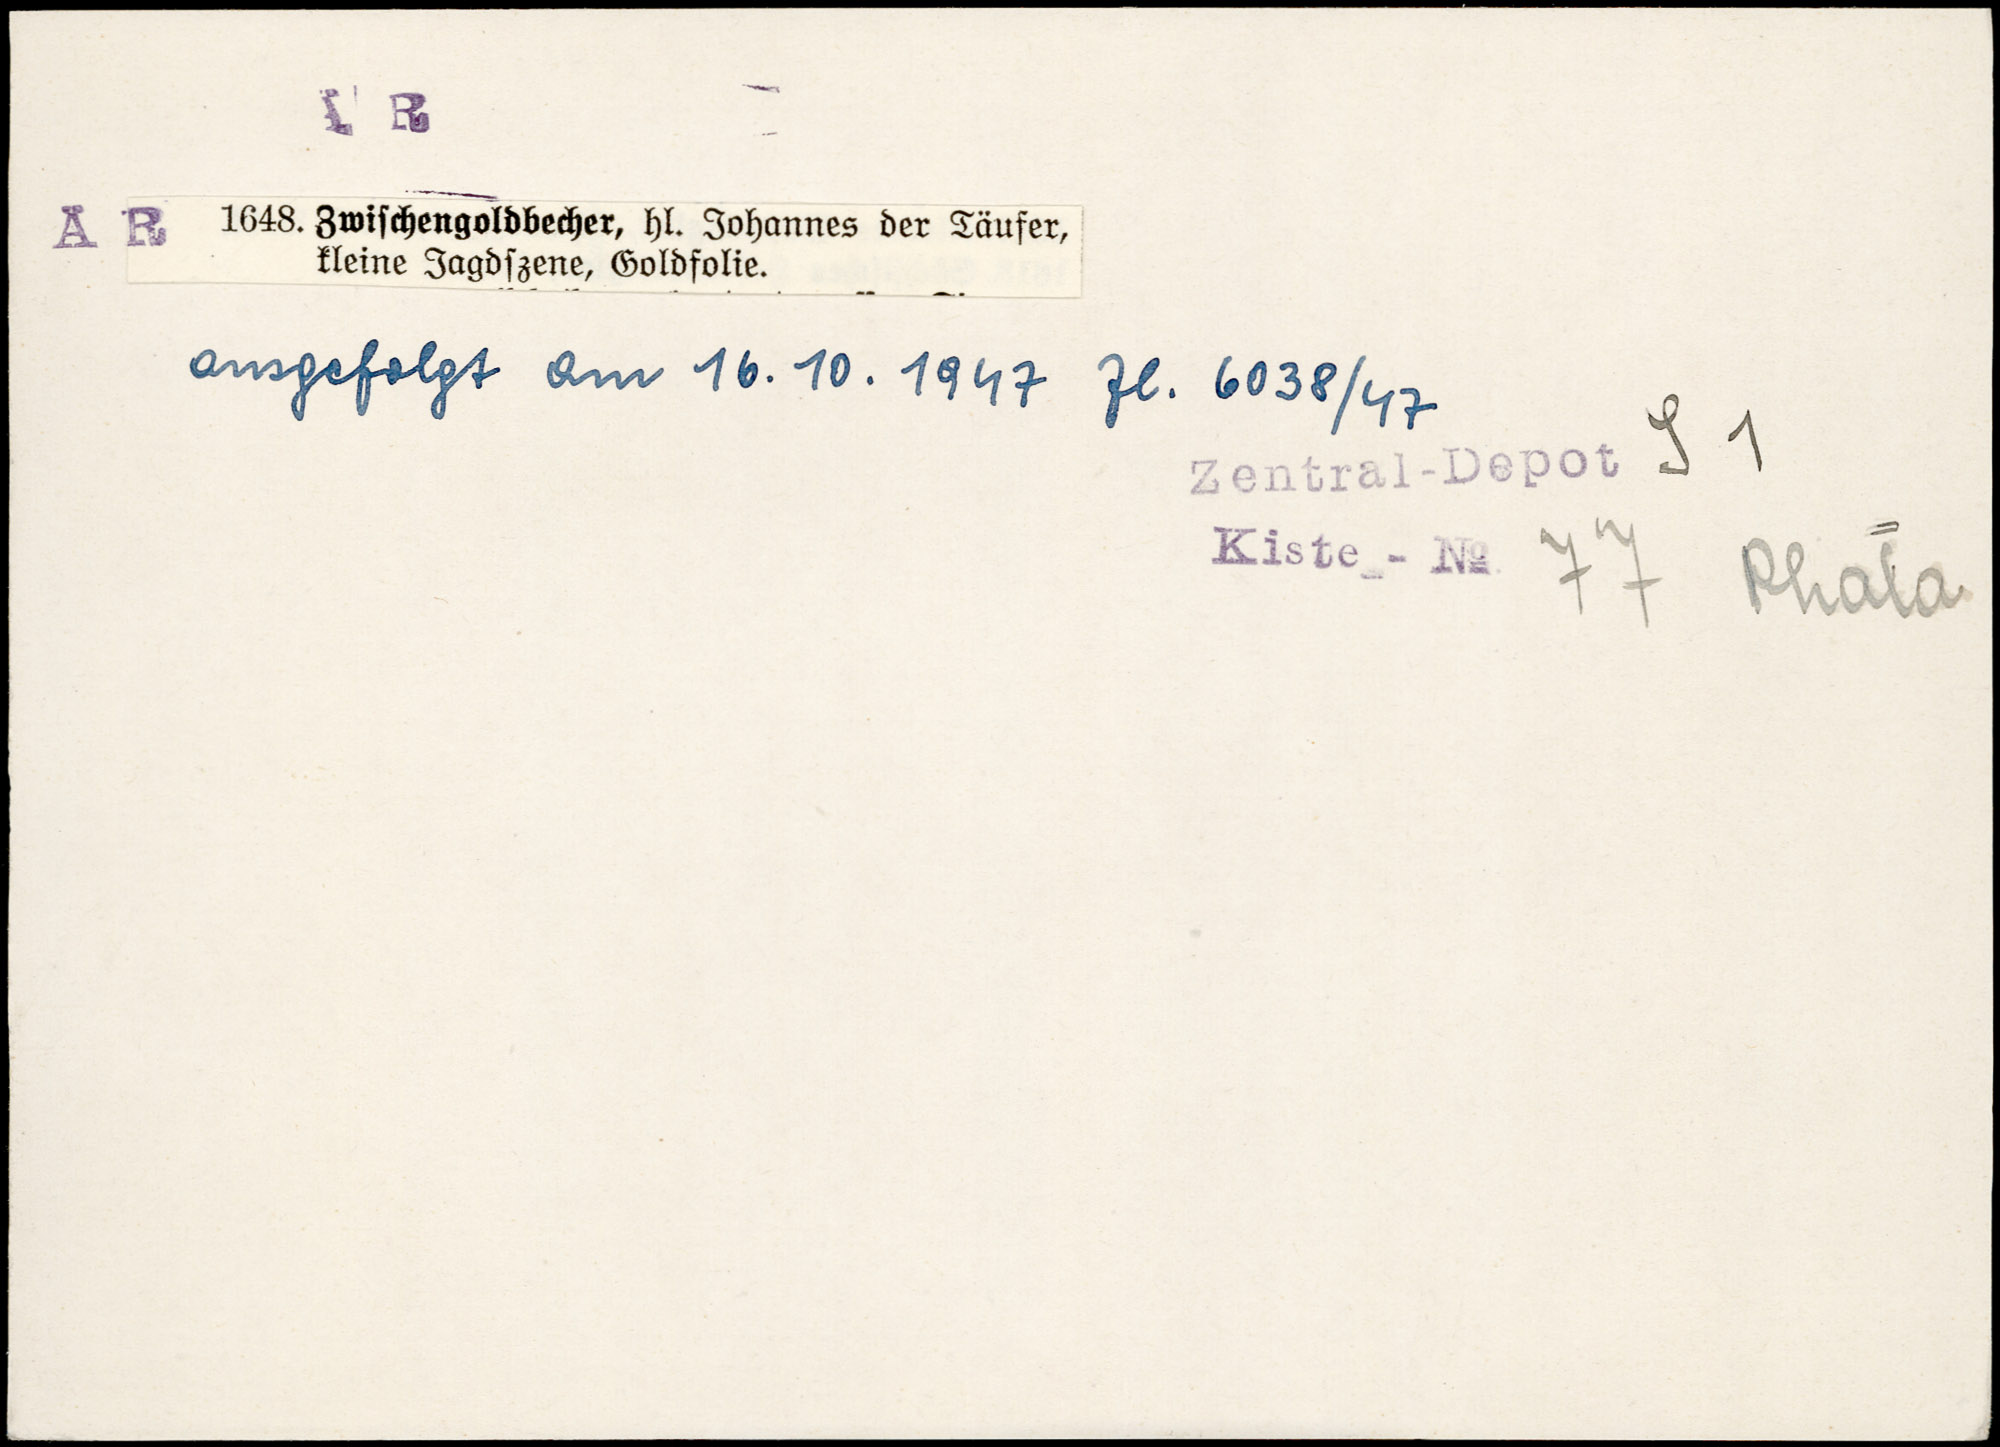 A R
A R 1648. Zwiſchengoldbecher, hl. Johannes der Täufer,
kleine Jagdſzene, Goldfolie.
ausgefolgt am 16. 10. 1947 Zl. 6038/47
Zentral-Depot S 1
Kiste - № 77